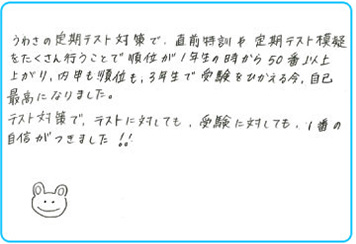 うわさの定期テスト対策で、直前特訓や定期テスト模擬
をたくさん行うことで順位が1年生の時から50番以上
上がり、内申も順位も、3年生で受験をひかえる今、自己
最高になりました。
テスト対策で、テストに対しても、受験に対しても、1番の
自信がつきました!!